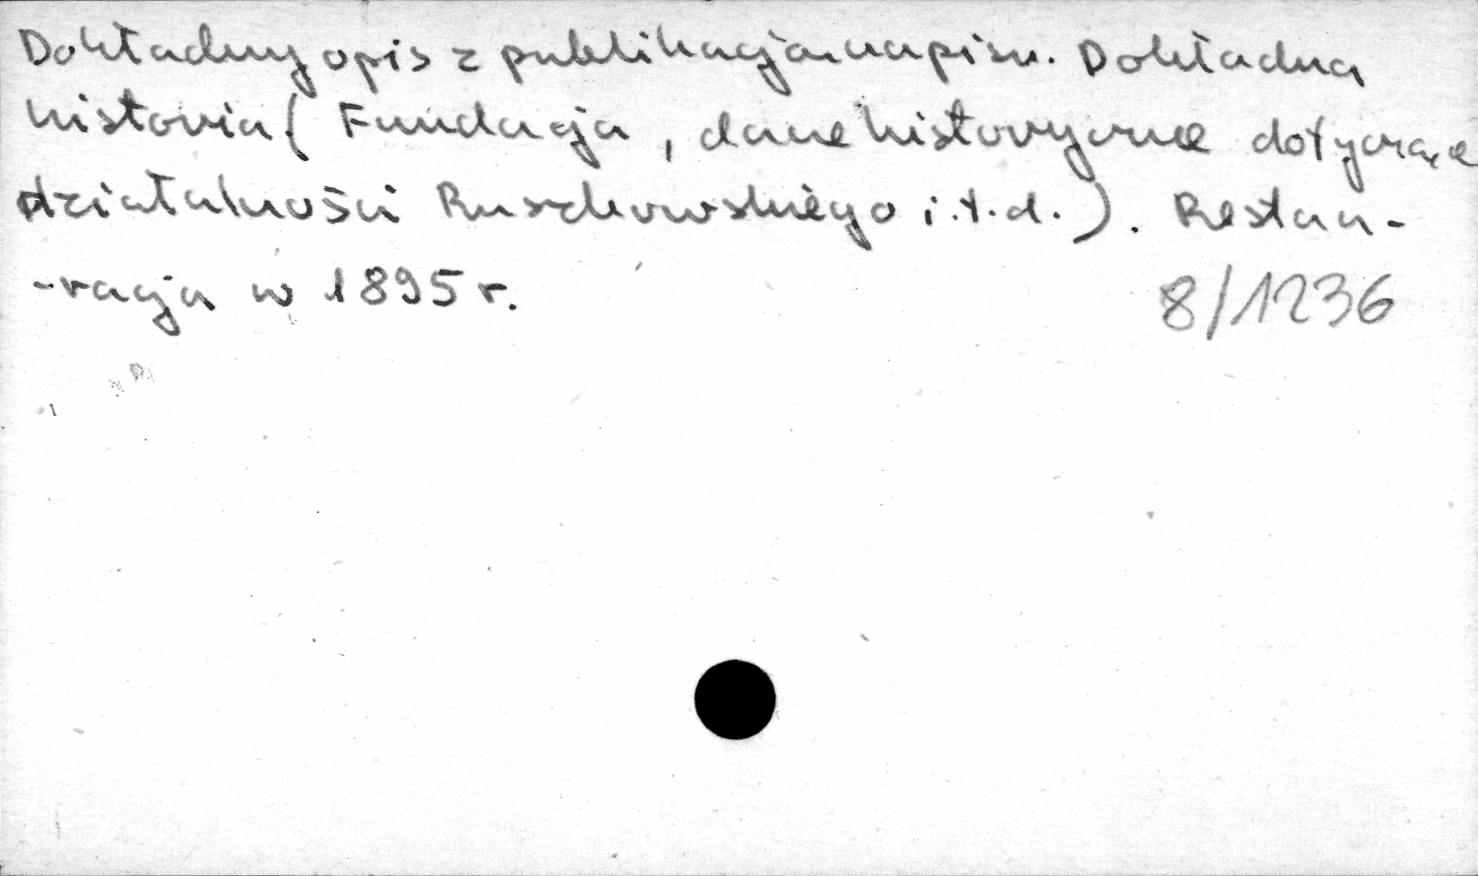 Dokładny opis z publikacją napisu. Dokładna
historia (Fundacja, dane historyczne dotyczące
działalności Ruszkowskiego i.t.d.). Restau-
-racja w 1895 r.
8/1236